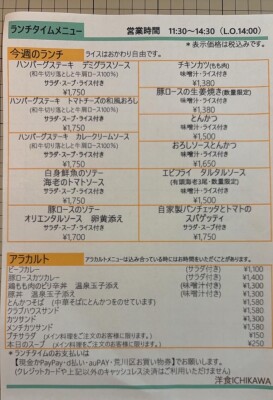 ランチタイムメニュー 営業時間 11:30～14:30 (L.O.14:00)
＊表示価格は税込みです。
今週のランチ ライスはおかわり自由です。
ハンバーグステーキ デミグラスソース
(和牛切り落としと牛肩ロース100%)
サラダ・スープ・ライス付き
¥1,750
ハンバーグステーキ トマトチーズの和風おろし
(和牛切り落としと牛肩ロース100%)
サラダ・スープ・ライス付き
¥1,750
ハンバーグステーキ カレークリームソース
(和牛切り落としと牛肩ロース100%)
サラダ・スープ・ライス付き
¥1,750
白身鮮魚のソテー
海老のトマトソース
サラダ・スープ・ライス付き
¥1,750
豚ロースのソテー
オリエンタルソース 卵黄添え
¥1,700
チキンカツ(もも肉)
味噌汁・ライス付き
¥1,380
豚ロースの生姜焼き(数量限定)
味噌汁・ライス付き
¥1,380
とんかつ
味噌汁・ライス付き
¥1,500
おろしソースとんかつ
味噌汁・ライス付き
¥1,650
エビフライ タルタルソース
(有頭海老3尾・数量限定)
味噌汁・ライス付き
¥1,850
自家製パンチェッタとトマトの
スパゲッティ
サラダ・スープ付き
¥1,750
アラカルト アラカルトメニューは込み合っている時にはお時間をいただくことがあります。
ビーフカレー (サラダ付き) ¥1,100
豚ロースカツカレー (サラダ付き) ¥1,400
鶏もも肉のピリ辛丼 温泉玉子添え (味噌汁付き) ¥1,300
豚丼 温泉玉子添え (味噌汁付き) ¥1,300
とんかつそば (中華そばにとんかつをのせています) ¥1,580
クラブハウスサンド ¥1,580
カツサンド ¥1,380
メンチカツサンド ¥1,580
プチサラダ (メイン料理をご注文のお客様に限ります) ¥150
本日のスープ (メイン料理をご注文のお客様に限ります。) ¥250
＊ランチタイムのお支払いは
【現金かPayPay・d払い・auPAY・荒川区お買い物券】でお願いします。
(クレジットカードや上記以外のキャッシュレス決済はご利用いただけません)
洋食ICHIKAWA